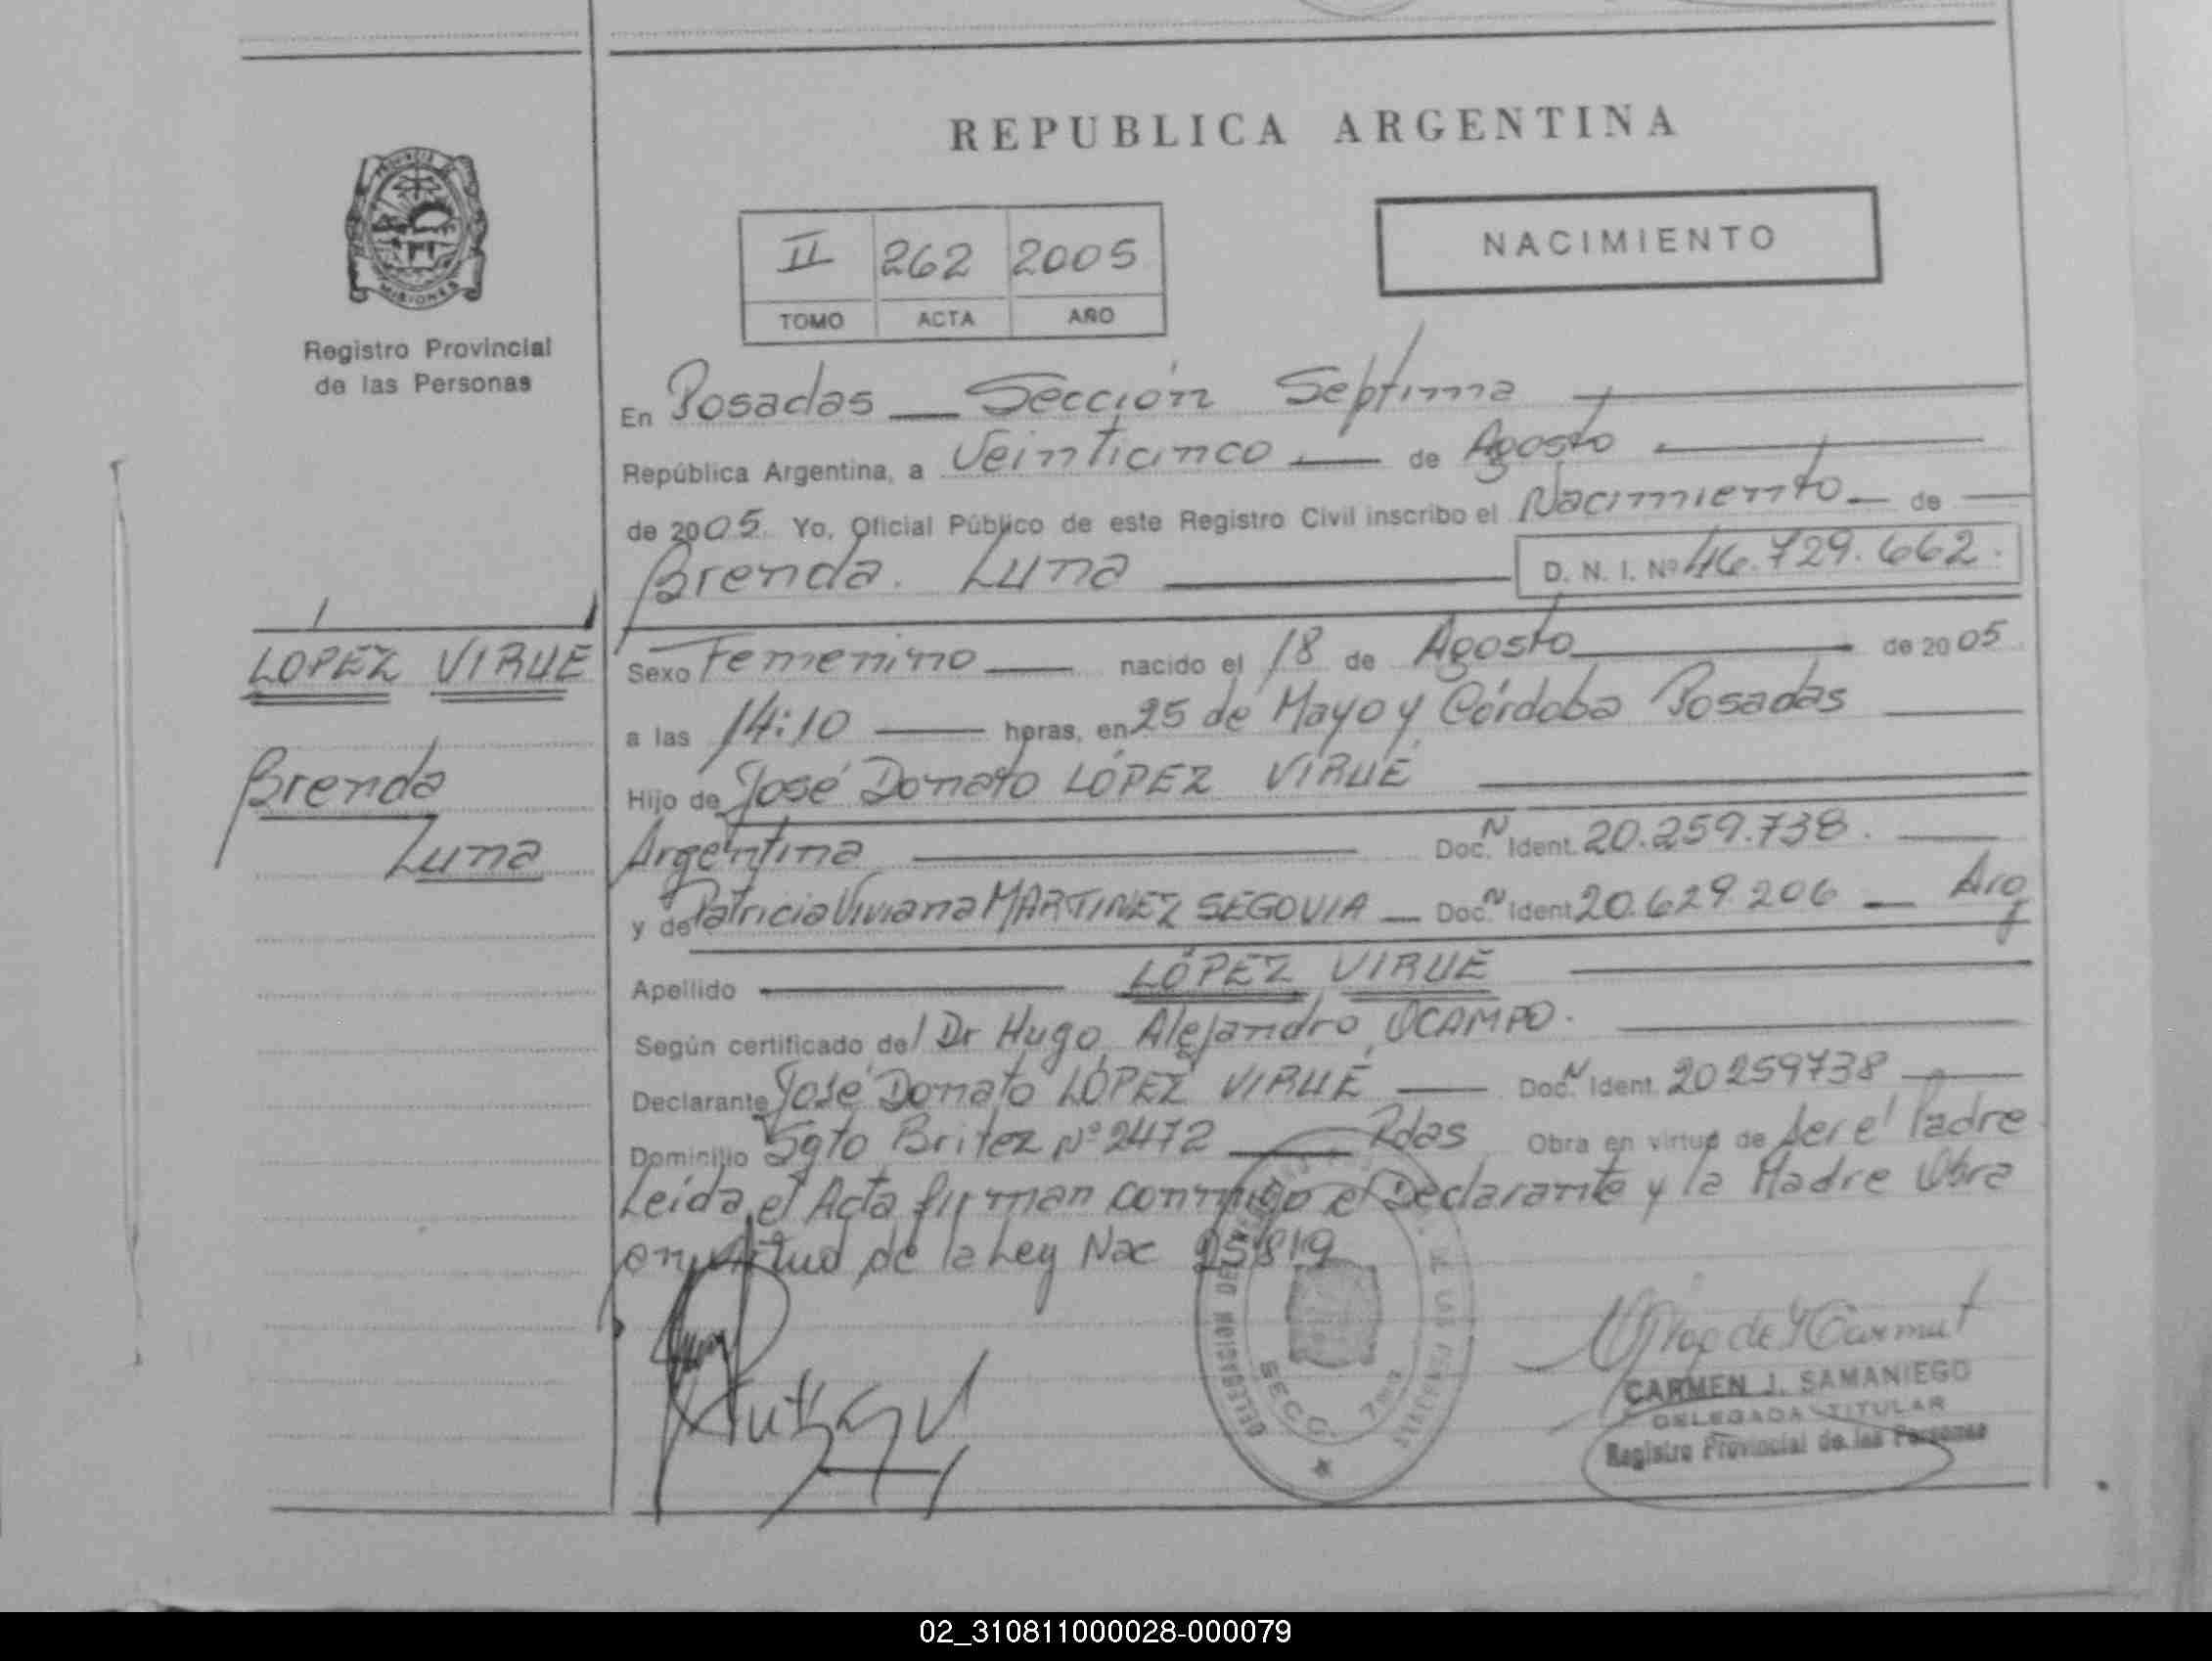 REPUBLICA ARGENTINA
PROVINCIA DE
MISIONES
Registro Provincial
de las Personas
II 262 2005
TOMO ACTA AÑO
NACIMIENTO
En Posadas — Sección Septima
República Argentina, a Veinticinco — de Agosto
de 2005. Yo, Oficial Público de este Registro Civil inscribo el Nacimiento — de
Brenda Luna D. N. I. Nº 46.729.662.
LOPEZ VIRUE
Brenda
Luna
Sexo Femenino — nacido el 18 de Agosto de 2005
a las 14:10 — horas, en 25 de Mayo y Córdoba Posadas
Hijo de José Donato LÓPEZ VIRUÉ
Argentina Doc. N Ident. 20.259.738.
y de Patricia Viviana MARTINEZ SEGOVIA — Doc. N Ident. 20.629.206 — Arg
Apellido LÓPEZ VIRUÉ
Según certificado del Dr Hugo Alejandro OCAMPO.
Declarante José Donato LÓPEZ VIRUÉ — Doc. N Ident. 20259738
Domicilio Sgto Britez Nº 2472 — Pdas Obra en virtud de Ser el Padre
Leida el Acta firman conmigo el Declarante y la Madre Obra
en virtud de la Ley Nac 25819
DELEGACION
DE LAS PERSONAS
SECC. 7ma
CARMEN J. SAMANIEGO
DELEGADA TITULAR
Registro Provincial de las Personas
02_310811000028-000079